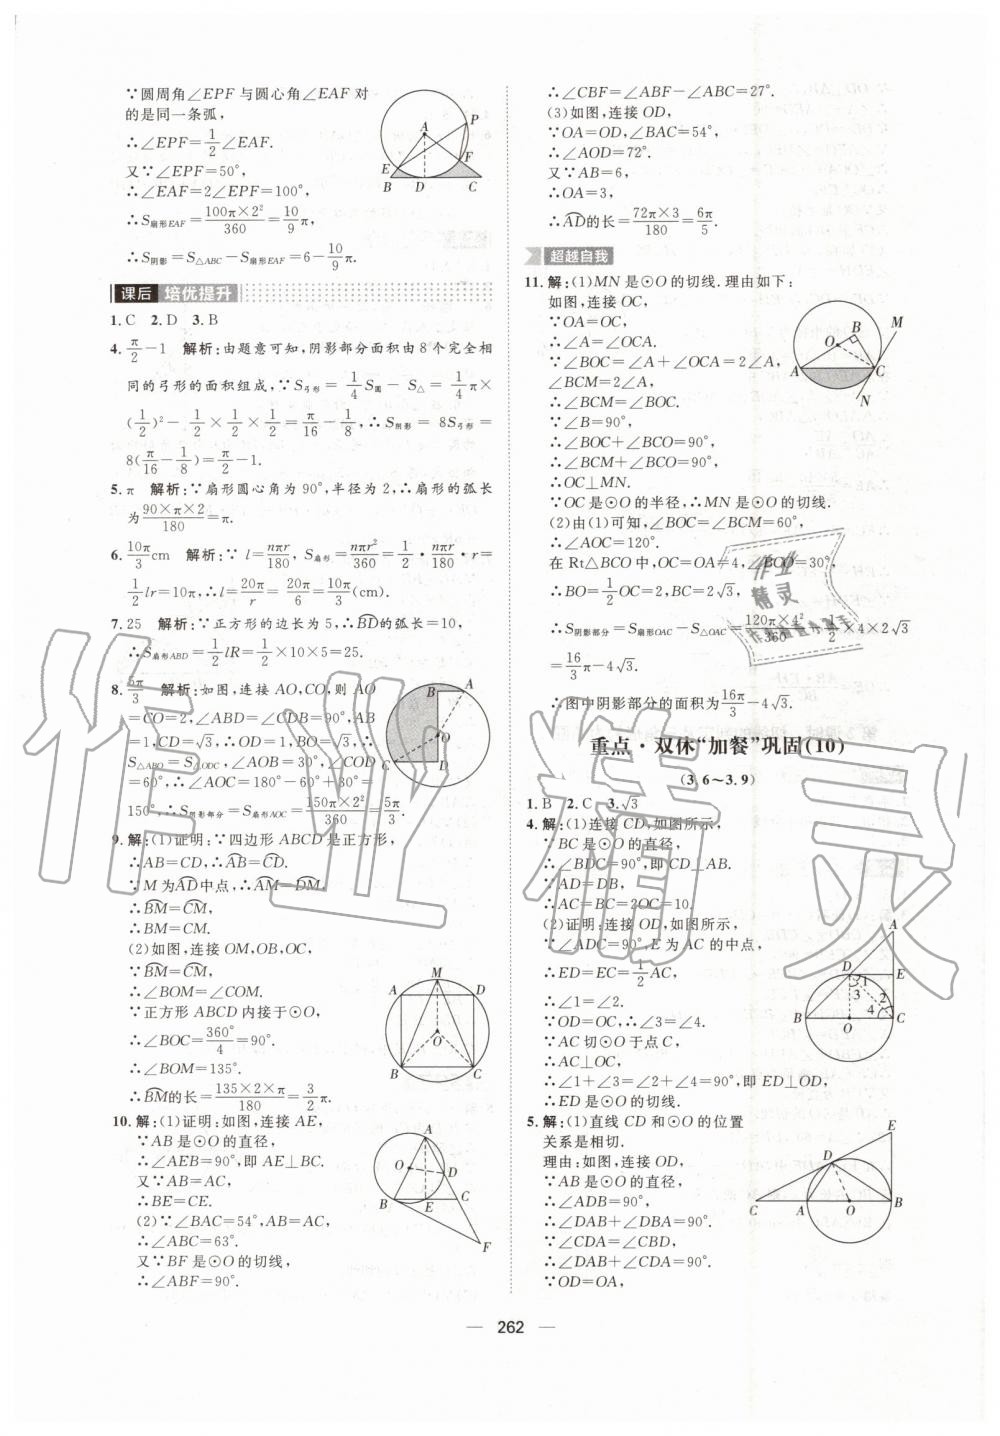 ∵圆周角∠EPF与圆心角∠EAF对
的是同一条弧,
∴∠EPF=1/2∠EAF.
又∵∠EPF=50°,
∴∠EAF=2∠EPF=100°,
∴S扇形EAF=100π×2²/360=10/9π,
∴S阴影=S△ABC-S扇形EAF=6-10/9π.
A
P
E
F
B
D
C
课后 培优提升
1. C 2. D 3. B
4. π/2-1 解析:由题意可知,阴影部分面积由8个完全相
同的弓形的面积组成,∵S弓形=1/4S圆-S△=1/4π×
(1/2)²-1/2×1/2×1/2=π/16-1/8,∴S阴影=8S弓形=
8(π/16-1/8)=π/2-1.
5. π 解析:∵扇形圆心角为90°,半径为2,∴扇形的弧长
为90×π×2/180=π.
6. 10π/3cm 解析:∵l=nπr/180,S扇形=nπr²/360=1/2·nπr/180·r=
1/2lr=10π,∴l=20π/r=20π/6=10π/3(cm).
7. 25 解析:∵正方形的边长为5,∴BD的弧长=10,
∴S扇形ABD=1/2lR=1/2×10×5=25.
8. 5π/3 解析:如图,连接AO,CO,则AO
=CO=2,∠ABD=∠CDB=90°,AB
=1,CD=√3,∴OD=1,BO=√3,∴
S△ABO=S△ODC,∠AOB=30°,∠COD
=60°,∴∠AOC=180°-60°+30°=
150°,∴S阴影部分=S扇形AOC=150π×2²/360=5π/3.
B
A
O
C
D
9. 解:(1)证明:∵四边形ABCD是正方形,
∴AB=CD,∴AB=CD.
∵M为AD中点,∴AM=DM,
∴BM=CM,
∴BM=CM.
(2)如图,连接OM,OB,OC,
∵BM=CM,
∴∠BOM=∠COM.
∵正方形ABCD内接于⊙O,
∴∠BOC=360°/4=90°.
∴∠BOM=135°.
∴BM的长=135×2×π/180=3/2π.
M
A
D
O
B
C
10. 解:(1)证明:如图,连接AE,
∵AB是⊙O的直径,
∴∠AEB=90°,即AE⊥BC.
又∵AB=AC,
∴BE=CE.
(2)∵∠BAC=54°,AB=AC,
∴∠ABC=63°.
又∵BF是⊙O的切线,
∴∠ABF=90°.
A
O
D
B
E
C
F
∴∠CBF=∠ABF-∠ABC=27°.
(3)如图,连接OD,
∵OA=OD,∠BAC=54°,
∴∠AOD=72°.
又∵AB=6,
∴OA=3,
∴AD的长=72π×3/180=6π/5.
超越自我
11. 解:(1)MN是⊙O的切线.理由如下:
如图,连接OC,
∵OA=OC,
∴∠A=∠OCA.
∵∠BOC=∠A+∠OCA=2∠A,
∠BCM=2∠A,
∴∠BCM=∠BOC.
∵∠B=90°,
∴∠BOC+∠BCO=90°,
∴∠BCM+∠BCO=90°,
∴OC⊥MN.
∵OC是⊙O的半径,∴MN是⊙O的切线.
(2)由(1)可知,∠BOC=∠BCM=60°,
∴∠AOC=120°.
在Rt△BCO中,OC=OA=4,∠BCO=30°,
∴BO=1/2OC=2,BC=2√3,
∴S阴影部分=S扇形OAC-S△OAC=120π×4²/360-1/2×4×2√3
=16/3π-4√3.
∴图中阴影部分的面积为16π/3-4√3.
M
B
O
A
C
N
重点·双休“加餐”巩固(10)
(3.6~3.9)
1. B 2. C 3. √3
4. 解:(1)连接CD,如图所示,
∵BC是⊙O的直径,
∴∠BDC=90°,即CD⊥AB.
∵AD=DB,
∴AC=BC=2OC=10.
(2)证明:连接OD,如图所示,
∵∠ADC=90°,E为AC的中点,
∴ED=EC=1/2AC,
∴∠1=∠2.
∵OD=OC,∴∠3=∠4.
∵AC切⊙O于点C,
∴AC⊥OC,
∴∠1+∠3=∠2+∠4=90°,即ED⊥OD,
∴ED是⊙O的切线.
A
D
E
1
3
2
4
B
O
C
5. 解:(1)直线CD和⊙O的位置
关系是相切.
理由:如图,连接OD,
∵AB是⊙O的直径,
∴∠ADB=90°,
∴∠DAB+∠DBA=90°.
∵∠CDA=∠CBD,
∴∠DAB+∠CDA=90°.
∵OD=OA,
E
D
C
A
O
B
— 262 —
作业精灵
作业
精灵